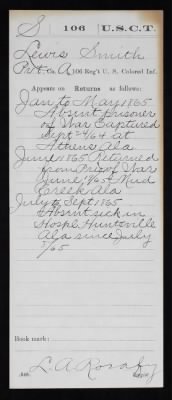 S 106 U.S.C.T.
Lewis Smith
Pvt., Co. A, 106 Reg't U. S. Colored Inf.
Appears on Returns as follows:
Jan to May 1865
Absent prisoner
of War Captured
Sept 24/64 at
Athens Ala
June 1865 Returned
from Pris of War
June 1/65 Mud
Creek Ala
July to Sept 1865
Absent sick in
Hospl Huntsville
Ala since July
/65
Book mark:
L. A.
Copyist.